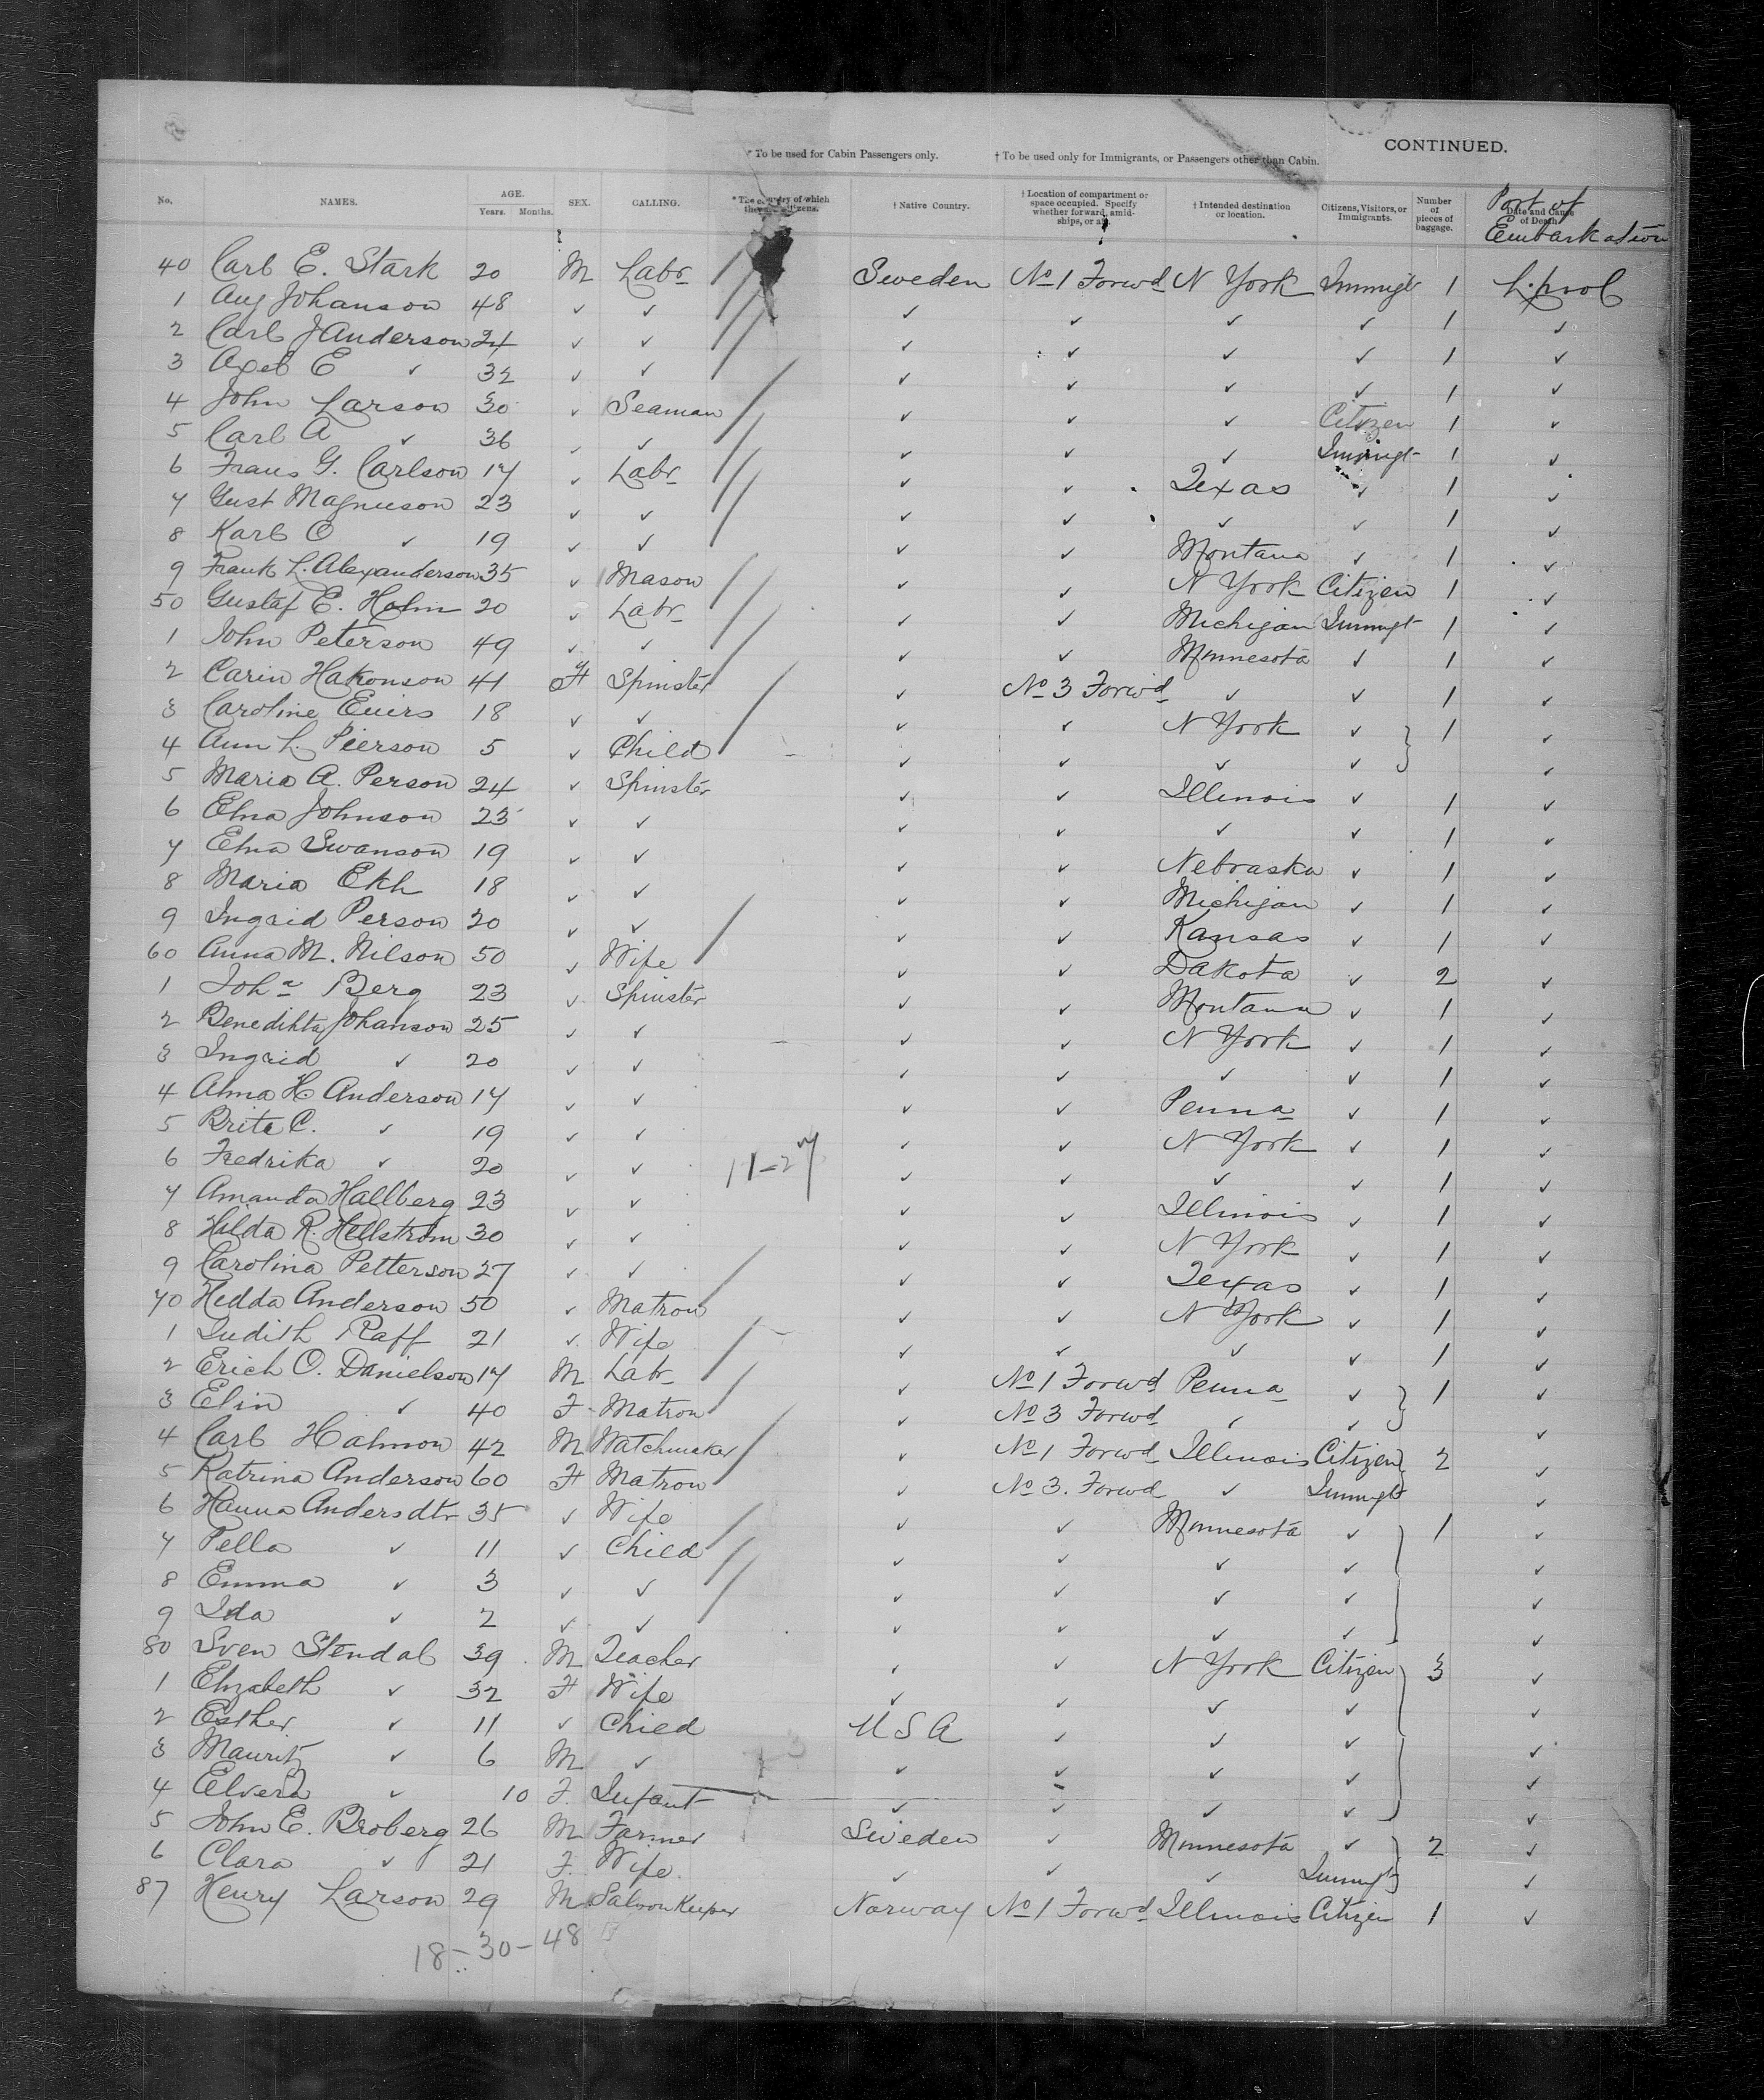 CONTINUED.
* To be used for Cabin Passengers only. † To be used only for Immigrants, or Passengers other than Cabin.
No. NAMES. AGE. Years. Months. SEX. CALLING. * The country of which they are citizens. † Native Country. † Location of compartment or space occupied. Specify whether forward, amidships, or aft. † Intended destination or location. Citizens, Visitors, or Immigrants. Number of pieces of baggage. Date and Cause of Death. Port of Embarkation
40 Carl E. Stark 20 M Labr Sweden No 1 Forwd N York Immigt 1 L.pool
1 Aug Johanson 48 ✓ ✓ ✓ ✓ ✓ ✓ 1 ✓
2 Carl J Anderson 24 ✓ ✓ ✓ ✓ ✓ ✓ 1 ✓
3 Axel E ✓ 32 ✓ ✓ ✓ ✓ ✓ ✓ 1 ✓
4 John Larson 30 ✓ Seaman ✓ ✓ ✓ Citizen 1 ✓
5 Carl A ✓ 36 ✓ ✓ ✓ ✓ ✓ Immigt 1 ✓
6 Frans G. Carlson 17 ✓ Labr ✓ ✓ Texas ✓ 1 ✓
7 Gust Magnuson 23 ✓ ✓ ✓ ✓ ✓ ✓ 1 ✓
8 Karl O ✓ 19 ✓ ✓ ✓ ✓ Montana ✓ 1 ✓
9 Frank L. Alexanderson 35 ✓ Mason ✓ ✓ N York Citizen 1 ✓
50 Gustaf E. Holm 20 ✓ Labr ✓ ✓ Michigan Immigt 1 ✓
1 John Peterson 49 ✓ ✓ ✓ ✓ Minnesota ✓ 1 ✓
2 Carin Hakonson 41 F Spinster ✓ No 3 Forwd ✓ ✓ 1 ✓
3 Caroline 18 ✓ ✓ ✓ ✓ N York ✓ 1 ✓
4 Ann L. Pierson 5 ✓ Child ✓ ✓ ✓ ✓ ✓
5 Maria A. Person 24 ✓ Spinster ✓ ✓ Illinois ✓ 1 ✓
6 Elna Johnson 23 ✓ ✓ ✓ ✓ ✓ ✓ 1 ✓
7 Elna Swanson 19 ✓ ✓ ✓ ✓ Nebraska ✓ 1 ✓
8 Maria Ekh 18 ✓ ✓ ✓ ✓ Michigan ✓ 1 ✓
9 Ingrid Person 20 ✓ ✓ ✓ ✓ Kansas ✓ 1 ✓
60 Anna M. Nilson 50 ✓ Wife ✓ ✓ Dakota ✓ 2 ✓
1 Joha Berg 23 ✓ Spinster ✓ ✓ Montana ✓ 1 ✓
2 Benedikta Johanson 25 ✓ ✓ ✓ ✓ N York ✓ 1 ✓
3 Ingrid ✓ 20 ✓ ✓ ✓ ✓ ✓ ✓ 1 ✓
4 Alma H Anderson 17 ✓ ✓ ✓ ✓ Penna ✓ 1 ✓
5 Brita C. ✓ 19 ✓ ✓ ✓ ✓ N York ✓ 1 ✓
6 Fredrika ✓ 20 ✓ ✓ 11-27 ✓ ✓ ✓ ✓ 1 ✓
7 Amanda Hallberg 23 ✓ ✓ ✓ ✓ Illinois ✓ 1 ✓
8 Hilda R. Hellstrom 30 ✓ ✓ ✓ ✓ N York ✓ 1 ✓
9 Carolina Petterson 27 ✓ ✓ ✓ ✓ Texas ✓ 1 ✓
70 Hedda Anderson 50 ✓ Matron ✓ ✓ N York ✓ 1 ✓
1 Judith Raff 21 ✓ Wife ✓ ✓ ✓ ✓ 1 ✓
2 Erich O. Danielson 17 M Labr ✓ No 1 Forwd Penna ✓ 1 ✓
3 Elin ✓ 40 F Matron ✓ No 3 Forwd ✓ ✓ ✓
4 Carl Halmon 42 M Watchmaker ✓ No 1 Forwd Illinois Citizen 2 ✓
5 Katrina Anderson 60 F Matron ✓ No 3. Forwd ✓ Immigt ✓
6 Hanna Andersdtr 35 ✓ Wife ✓ ✓ Minnesota ✓ 1 ✓
7 Pella ✓ 11 ✓ Child ✓ ✓ ✓ ✓ ✓
8 Emma ✓ 3 ✓ ✓ ✓ ✓ ✓ ✓ ✓
9 Ida ✓ 2 ✓ ✓ ✓ ✓ ✓ ✓ ✓
80 Sven Stendal 39 M Teacher ✓ ✓ N York Citizen 3 ✓
1 Elizabeth ✓ 32 F Wife ✓ ✓ ✓ ✓ ✓
2 Esther ✓ 11 ✓ Child U S A ✓ ✓ ✓ ✓
3 Mauritz ✓ 6 M ✓ ✓ ✓ ✓ ✓ ✓
4 Elvera ✓ 10 F. Infant ✓ ✓ ✓ ✓ ✓
5 John E. Broberg 26 M Farmer Sweden ✓ Minnesota ✓ 2 ✓
6 Clara ✓ 21 F. Wife ✓ ✓ ✓ Immigt ✓
87 Henry Larson 29 M Saloon Keeper Norway No 1 Forwd Illinois Citizen 1 ✓
18-30-48